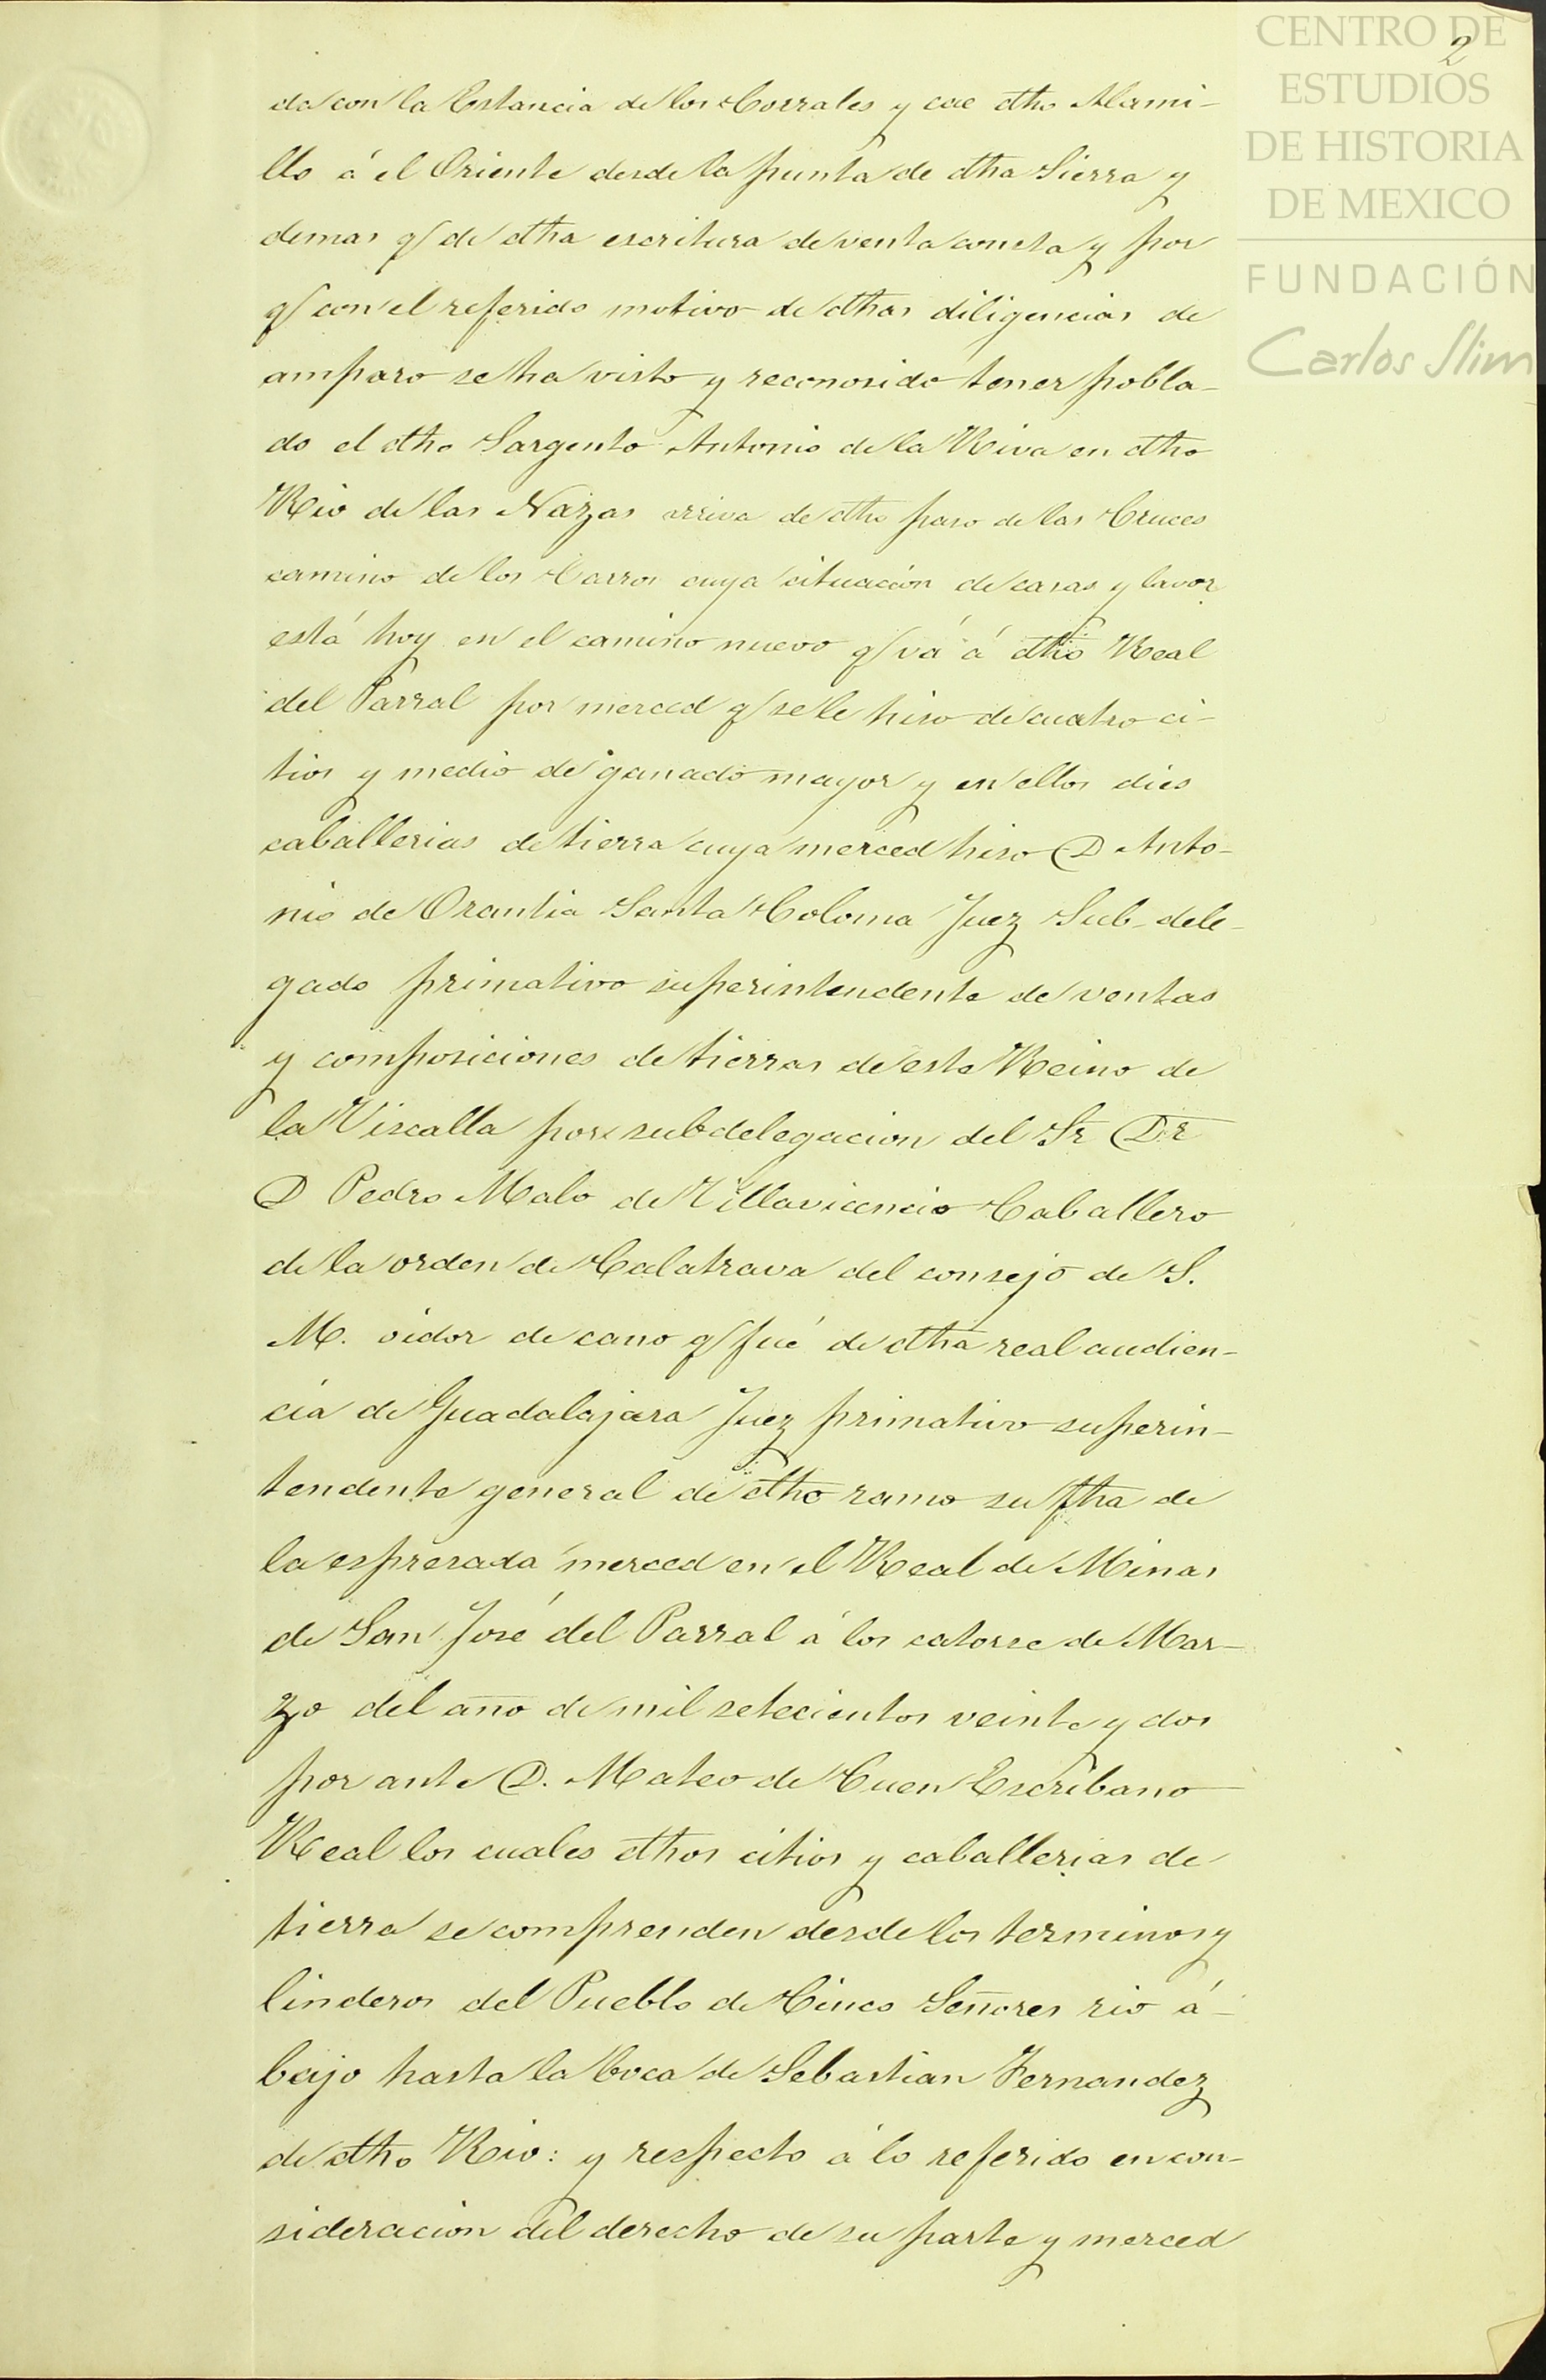 CENTRO DE
ESTUDIOS
DE HISTORIA
DE MEXICO
FUNDACIÓN
Carlos Slim
2
da con la Estancia de los Corrales y cae dho Alami-
llo á el Oriente desde la punta de dha Sierra y
demas q de dha escritura de venta consta y por
q con el referido motivo de dhas diligencias de
amparo se ha visto y reconosido tener pobla-
do el dho Sargento Antonio de la Riva en dho
Rio de las Nazas arriva de dho paso de las Cruces
camino de los Carros cuya cituación de casas y lavor
está hoy en el camino nuevo q vá á dho Real
del Parral por merced q se le hiso de cuatro ci-
tios y medio de ganado mayor y en ellos dies
caballerias de tierra cuya merced hiso D Anto-
nio de Orantia Santa Coloma Juez Sub-dele-
gado primativo superintendente de ventas
y composiciones de tierras de este Reino de
la Viscalla por subdelegacion del Sr Dr
D Pedro Malo de Villavicencio Caballero
de la orden de Calatrava del consejo de S.
M. oidor de cano q fué de dha real audien-
cia de Guadalajara Juez primativo superin-
tendente general de dho ramo su fha de
la espresada merced en el Real de Minas
de San José del Parral á los catorse de Mar-
zo del año de mil setecientos veinte y dos
por ante D. Mateo de Cuen Escribano
Real los cuales dhos citios y caballerias de
tierra se comprenden desde los terminos y
linderos del Pueblo de Cinco Señores rio á-
bajo hasta la boca de Sebastian Fernandez
de dho Rio: y respecto á lo referido en con-
sideracion del derecho de su parte y merced